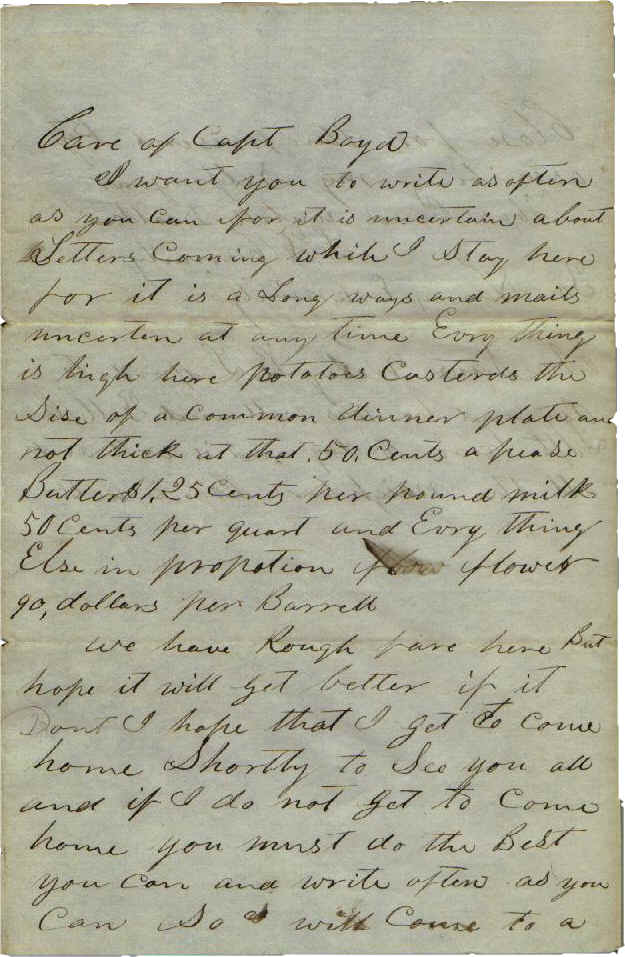 Care of Capt Boyd
I want you to write as often
as you Can for it is uncertain about
Letters Coming while I Stay here
for it is a Long ways and mails
uncerten at any time Evry thing
is high here potatoes Custerds the
Sise of a Common dinner plate and
not thick at that. 50. Cents a pease
Butter $1,25 Cents per pound milk
50 Cents per quart and Evry thing
Else in propotion flower
90, dollars per Barrell
we have Rough fare here But
hope it will get better if it
Dont I hope that I get to come
home Shortly to See you all
and if I do not get to Come
home you must do the Best
you can and write often as you
Can So I will Come to a